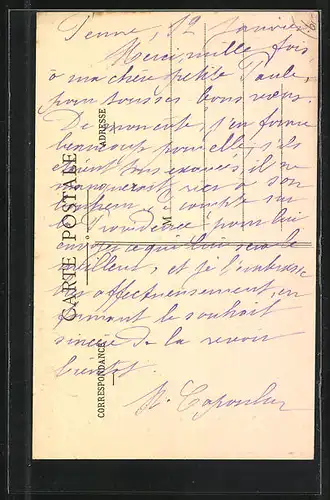 12 Janvier
Merci, mille fois,
à ma chère petite Paule,
pour tous ses bons vœux.
De mon côté, j'en forme
beaucoup pour elle; s'ils
étaient tous exaucés, il ne
manquerait rien à son
bonheur. compte sur
la Providence pour lui
envoyer ce que sera le
meilleur, et je l'embrasse
affectueusement, en
formant le souhait
sincère de la revoir
bientôt.
CARTE POSTALE
CORRESPONDANCE
ADRESSE
M